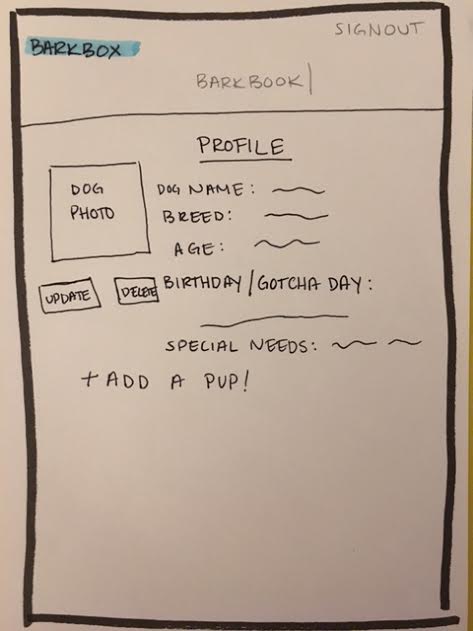 SIGNOUT
BARKBOX
BARKBOOK
PROFILE
DOG
PHOTO
DOG NAME:
BREED:
AGE:
UPDATE
DELETE
BIRTHDAY/GOTCHA DAY:
SPECIAL NEEDS:
+ ADD A PUP!